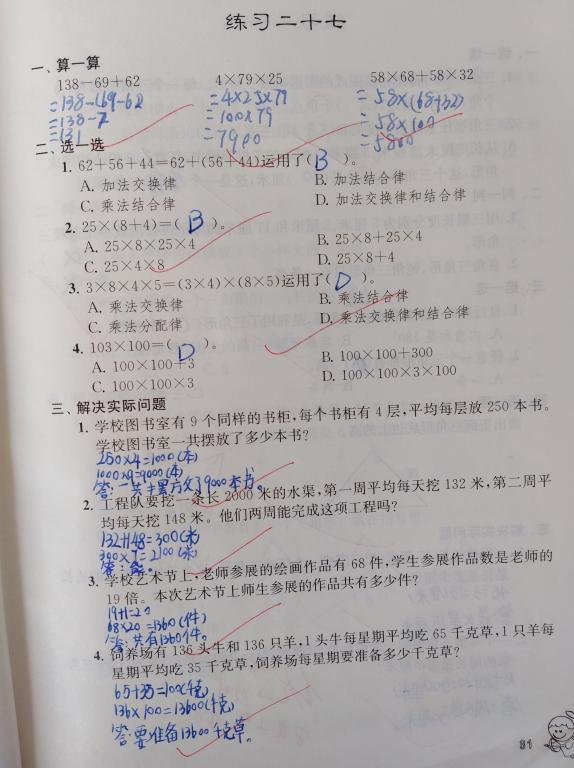 练习二十七
一、算一算
138－69＋62 4×79×25 58×68＋58×32
=138-(69-62) =4×25×79 =58×(68+32)
=138-7 =100×79 =58×100
=131 =7900 =5800
二、选一选
1. 62＋56＋44＝62＋(56＋44)运用了( B )。
A. 加法交换律 B. 加法结合律
C. 乘法结合律 D. 加法交换律和结合律
2. 25×(8＋4)＝( B )。
A. 25×8×25×4 B. 25×8＋25×4
C. 25×4×8 D. 25×8＋4
3. 3×8×4×5＝(3×4)×(8×5)运用了( D )。
A. 乘法交换律 B. 乘法结合律
C. 乘法分配律 D. 乘法交换律和结合律
4. 103×100＝( D )。
A. 100×100＋3 B. 100×100＋300
C. 100×100×3 D. 100×100×3×100
三、解决实际问题
1. 学校图书室有 9 个同样的书柜，每个书柜有 4 层，平均每层放 250 本书。
学校图书室一共摆放了多少本书？
250×4=1000(本)
1000×9=9000(本)
答:一共摆放了9000本书。
2. 工程队要挖一条长 2000 米的水渠，第一周平均每天挖 132 米，第二周平
均每天挖 148 米。他们两周能完成这项工程吗？
132+148=300(米)
300×7=2100(米)
答:能。
3. 学校艺术节上，老师参展的绘画作品有 68 件，学生参展作品数是老师的
19 倍。本次艺术节上师生参展的作品共有多少件？
19+1=20
68×20=1360(件)
答:共有1360件。
4. 饲养场有 136 头牛和 136 只羊，1 头牛每星期平均吃 65 千克草，1 只羊每
星期平均吃 35 千克草，饲养场每星期要准备多少千克草？
65+35=100(千克)
136×100=13600(千克)
答:要准备13600千克草。
81